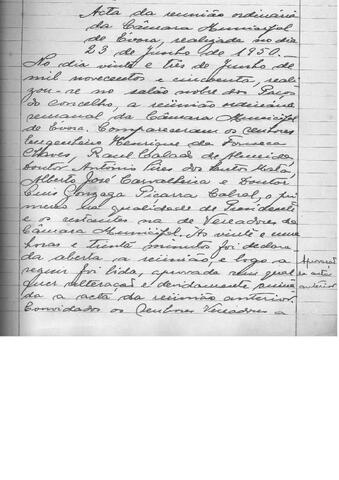 Acta da reunião ordinária
da Câmara Municipal
de Évora, realizada no dia
23 de Junho de 1950.—
No dia vinte e três de Junho de
mil novecentos e cincoenta, reali
zou-se no salão nobre dos Paços
do Concelho, a reünião ordinária
semanal da Câmara Municipal
de Évora. Compareceram os Senhores
Engenheiro Henrique da Fonseca
Chaves, Raul Salade de Almeida,
Doutor António Pires dos Santos
Alberto José Carvalheira e Doutor
Luis Gonzaga Piçarra Cabral, o pri
meiro na qualidade de Presidente
e os restantes na de Vereadores da
Câmara Municipal. Às vinte e uma
horas e trinta minutos foi declara
da aberta a reünião, e logo a
seguir foi lida, aprovada sem qual
quer alteração e devidamente assina
da a acta da reünião anterior.
Convidados os Senhores Vereadores a
da acta
anterior